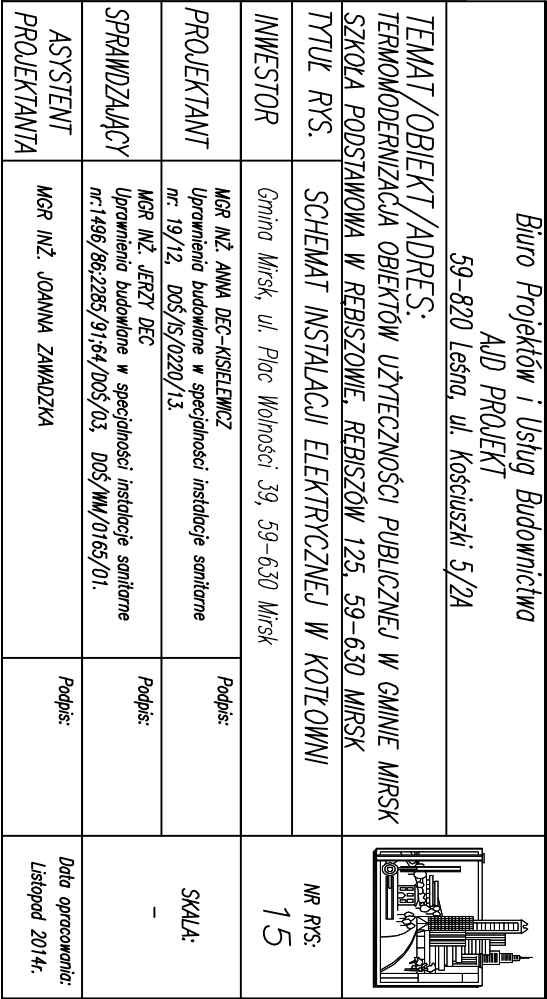 Biuro Projektów i Usług Budownictwa
AJD PROJEKT
59-820 Leśna, ul. Kościuszki 5/2A
TEMAT/OBIEKT/ADRES:
TERMOMODERNIZACJA OBIEKTÓW UŻYTECZNOŚCI PUBLICZNEJ W GMINIE MIRSK
SZKOŁA PODSTAWOWA W RĘBISZOWIE, RĘBISZÓW 125, 59-630 MIRSK
TYTUŁ RYS.
SCHEMAT INSTALACJI ELEKTRYCZNEJ W KOTŁOWNI
NR RYS:
15
INWESTOR
Gmina Mirsk, ul. Plac Wolności 39, 59-630 Mirsk
PROJEKTANT
MGR INŻ. ANNA DEC-KISIELEWICZ
Uprawnienia budowlane w specjalności instalacje sanitarne
nr: 19/12, DOŚ/IS/0220/13.
Podpis:
SKALA:
-
SPRAWDZAJĄCY
MGR INŻ. JERZY DEC
Uprawnienia budowlane w specjalności instalacje sanitarne
nr:1496/86;2285/91;64/DOŚ/03, DOŚ/WM/0165/01.
Podpis:
ASYSTENT
PROJEKTANTA
MGR INŻ. JOANNA ZAWADZKA
Podpis:
Data opracowania:
Listopad 2014r.